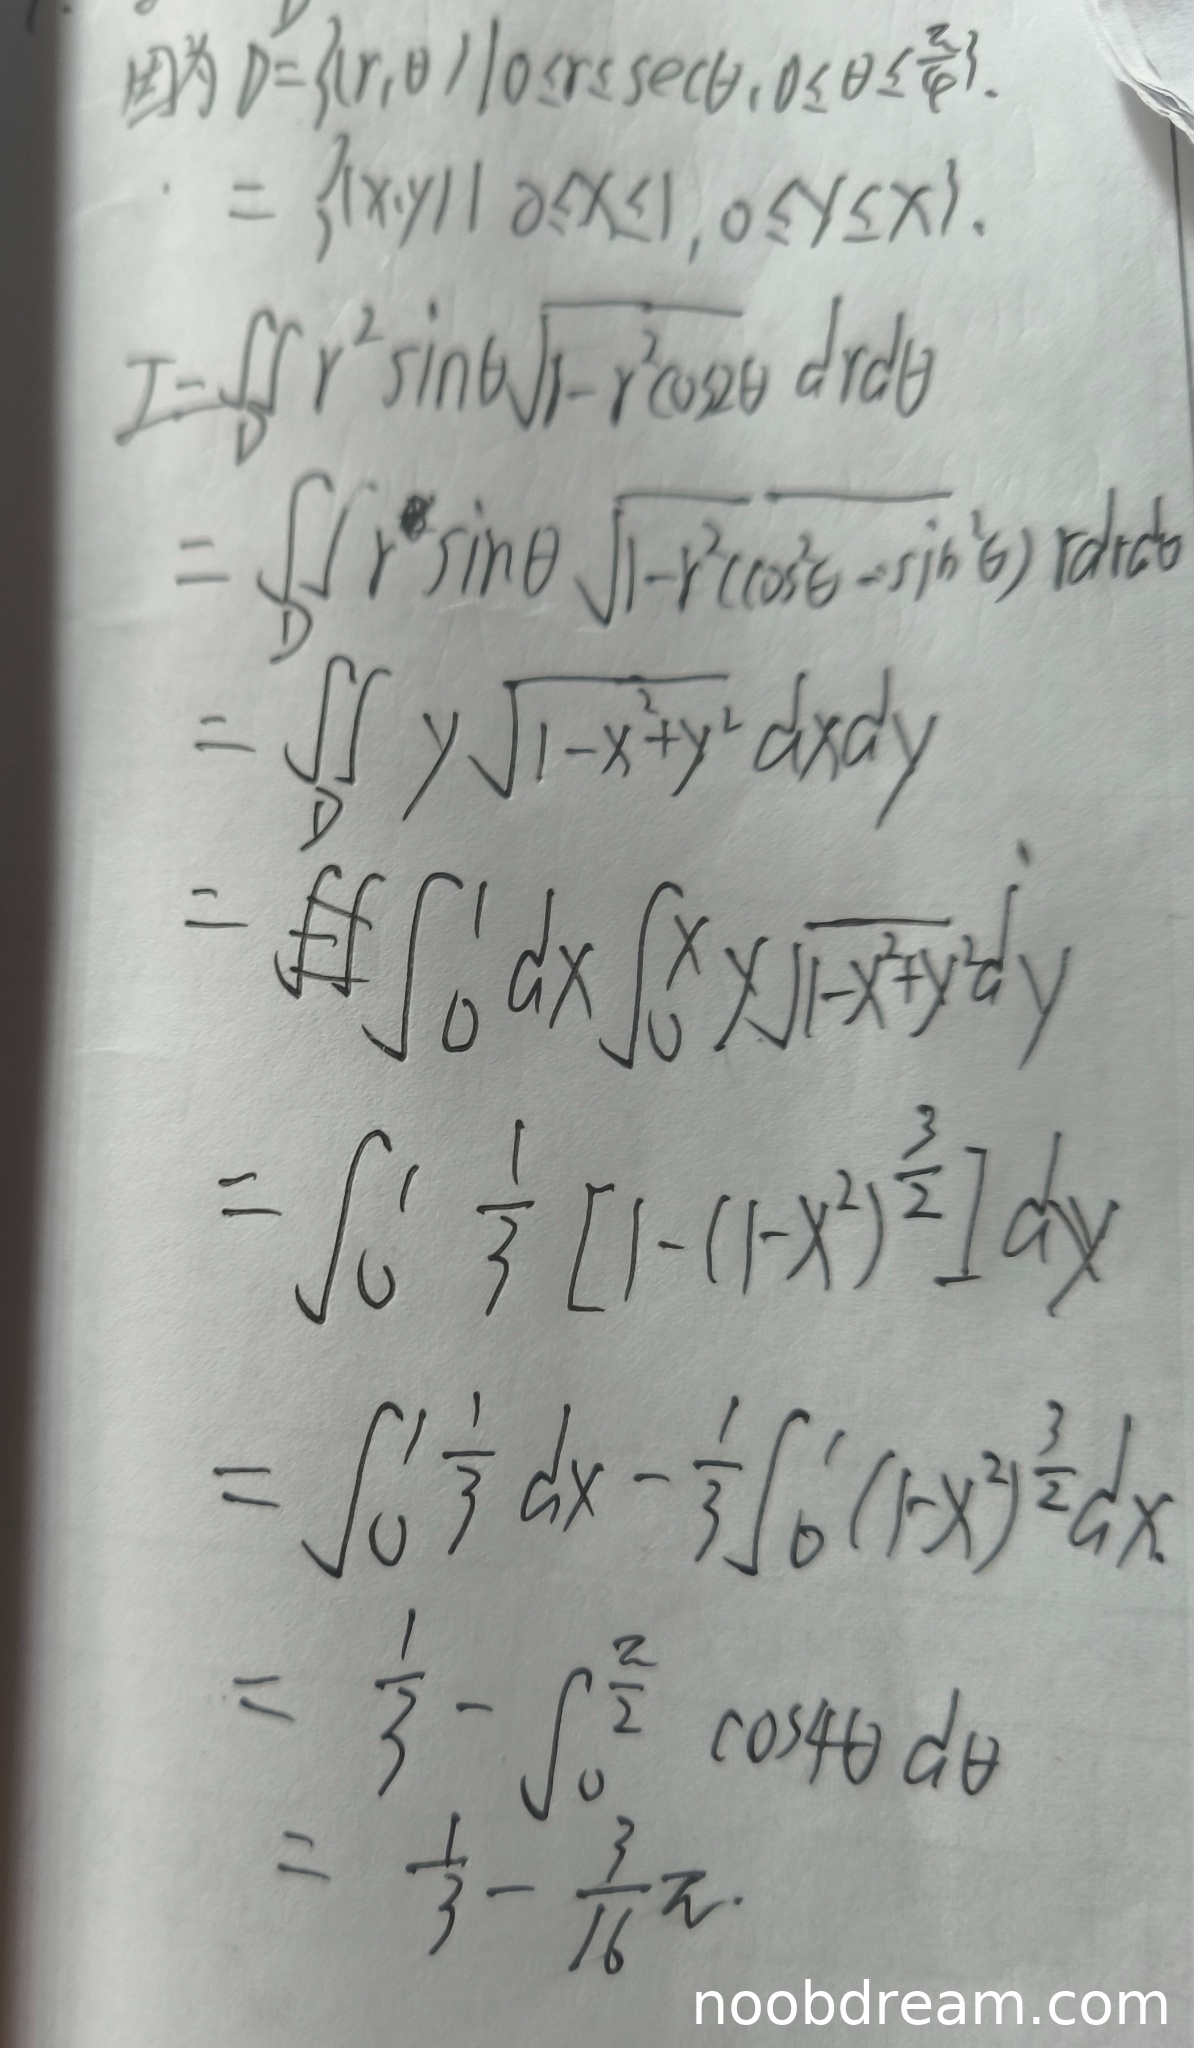 因为 D={(r,θ)|0≤r≤secθ,0≤θ≤π/4}.
= {(x,y)| 0≤x≤1, 0≤y≤x}.
I=∬_D r²sinθ√(1-r²cos2θ) drdθ
= ∬_D r sinθ √(1-r²(cos²θ-sin²θ)) rdrdθ
= ∬_D y√(1-x²+y²) dxdy
= ∫₀¹ dx ∫₀ˣ y√(1-x²+y²) dy
= ∫₀¹ 1/3 [1-(1-x²)^(3/2)] dy
= ∫₀¹ 1/3 dx - 1/3 ∫₀¹ (1-x²)^(3/2) dx.
= 1/3 - ∫₀^(π/2) cos4θ dθ
= 1/3 - 3/16 π.
noobdream.com